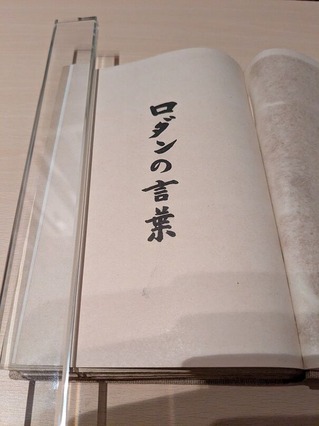 ロダンの言葉